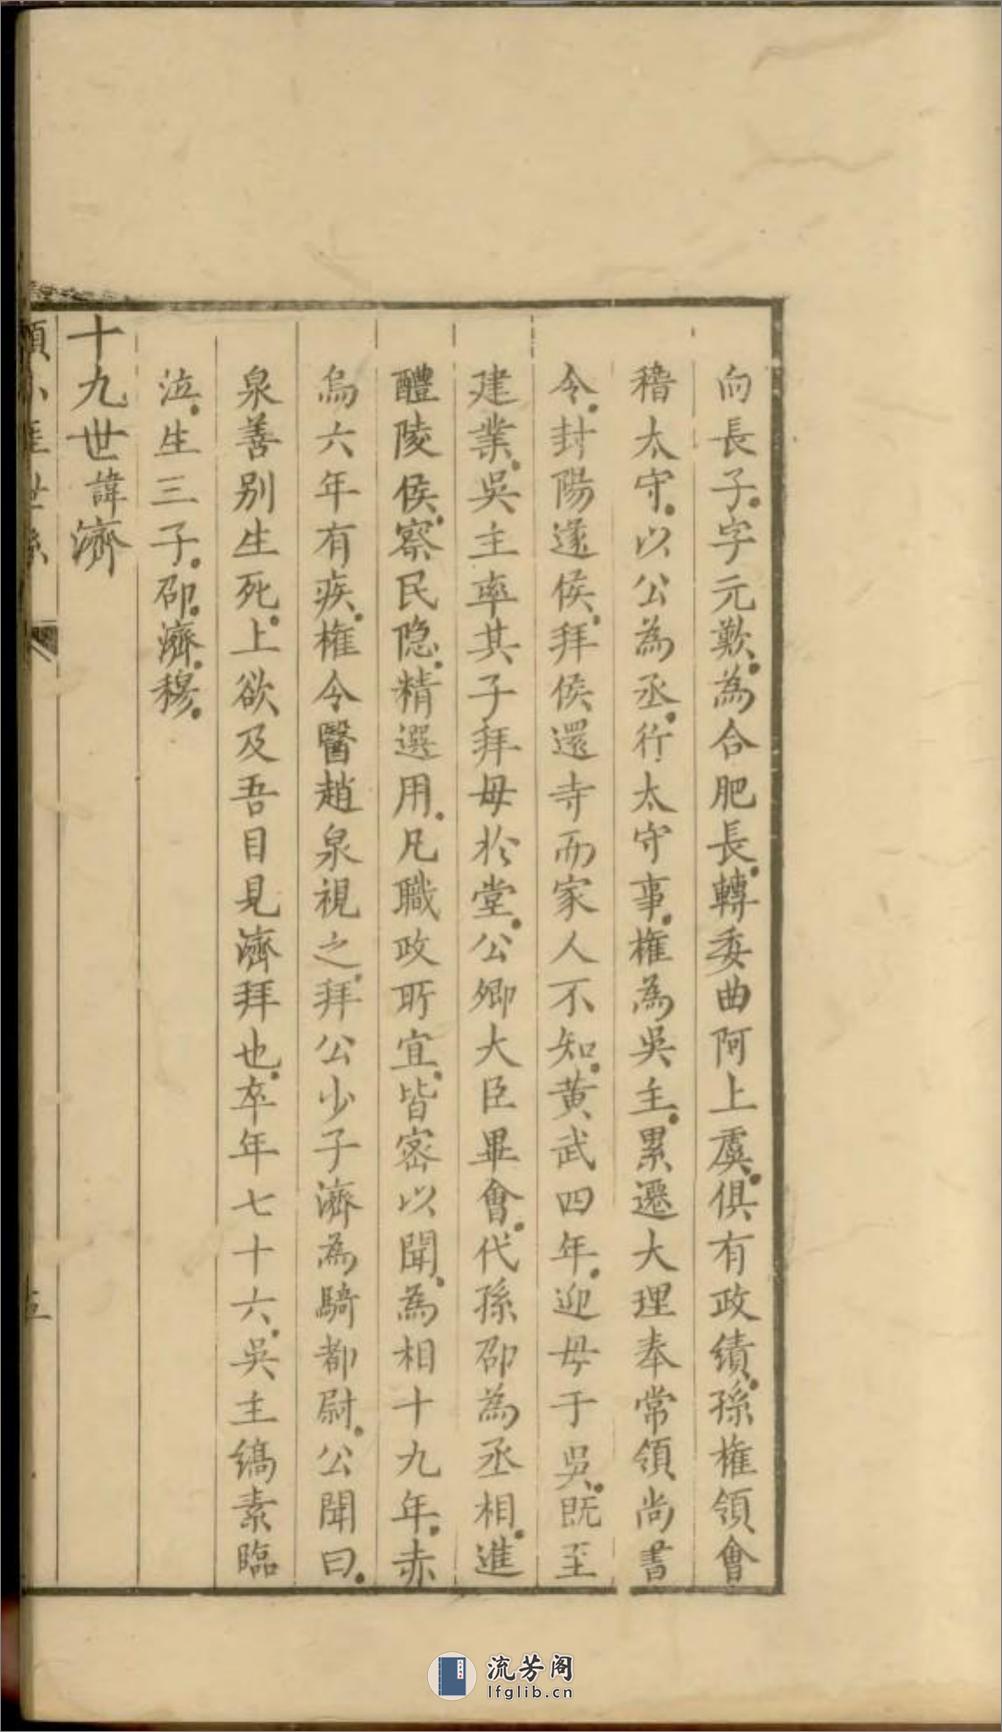 向長子字元歎為合肥長轉委曲阿上虞俱有政績孫權領會
稽太守以公為丞行太守事權為吳主累遷大理奉常領尚書
令封陽遂侯拜侯還寺而家人不知黃武四年迎母于吳既至
建業吳主率其子拜母於堂公卿大臣畢會代孫邵為丞相進
醴陵侯察民隐精選用凡職政所宜皆密以聞為相十九年赤
烏六年有疾權令醫趙泉視之拜公少子濟為騎都尉公聞曰
泉善別生死上欲及吾目見濟拜也卒年七十六吳主縞素臨
泣生三子邵濟穆
十九世諱濟
五
流芳阁
lfglib.cn